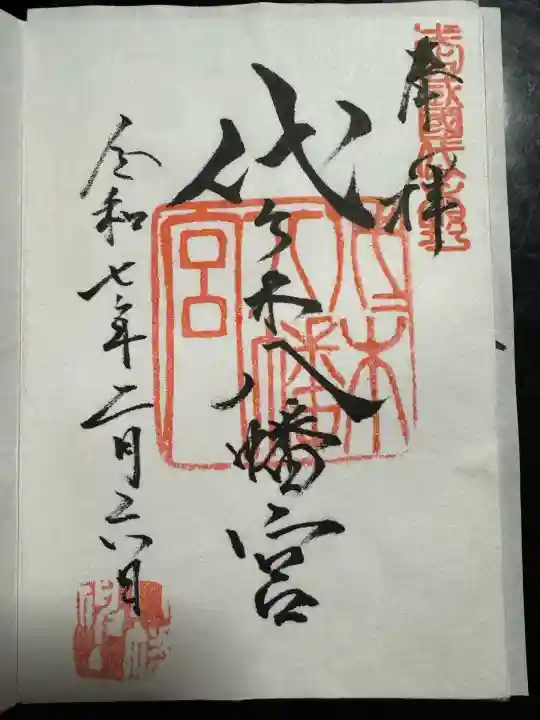 奉拝
代々木八幡宮
代々木八幡宮
令和七年二月二六日